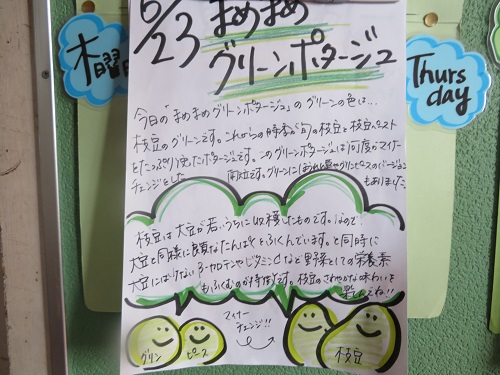 6/23 まめまめ
グリーンポタージュ
木曜日
Thurs
day
今日の「まめまめグリーンポタージュ」のグリーンの色は…
枝豆のグリーンです。これからの時季が旬の枝豆と枝豆ペースト
をたっぷり使ったポタージュです。このグリーンポタージュは何度かマイナー
チェンジをした
同位です。グリーンに
もありました
枝豆は大豆が若いうちに収穫したものです。なので
大豆と同様に良質なたんぱくをふくんでいます。と同時に
大豆にはいけないβ-カロテンやビタミンCなど野菜としての栄養素
もふくむのが特徴です。枝豆のさわやかな味わいを
楽しんでね!!
マイナー
チェンジ!!
グリン
ピース
枝豆